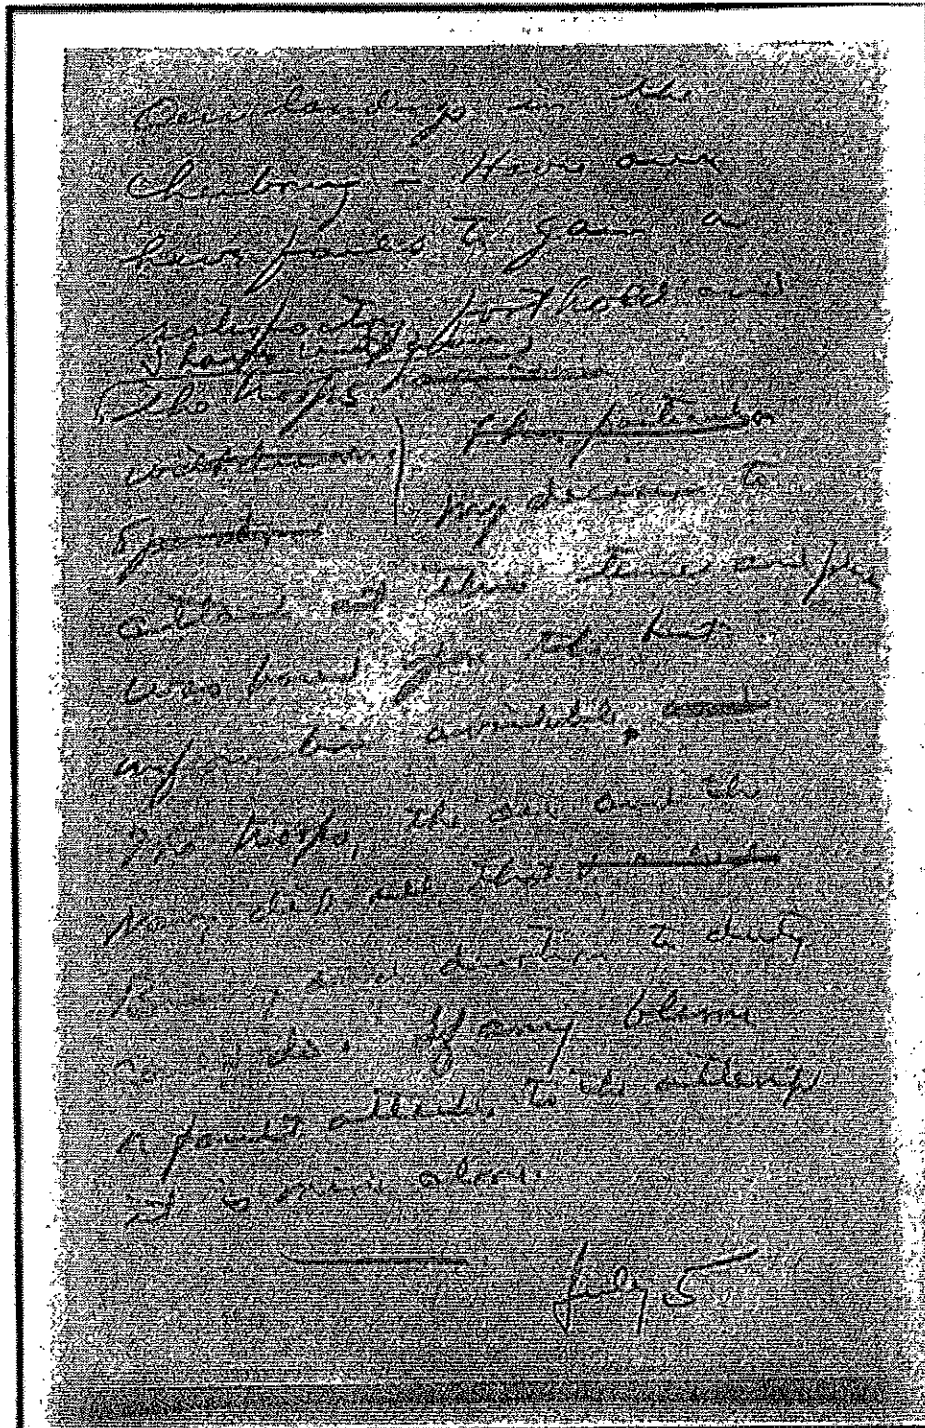 Our landings in the
Cherbourg - Havre area
have failed to gain a
satisfactory foothold and
I have withdrawn
the troops.
This particular
withdrawn
my decision to
attack at this time and place
was based upon the best
information available, and
The troops, the air and the
navy did all that
Bravery and devotion to duty
could do. If any blame
or fault attaches to the attempt
it is mine alone.
July 5